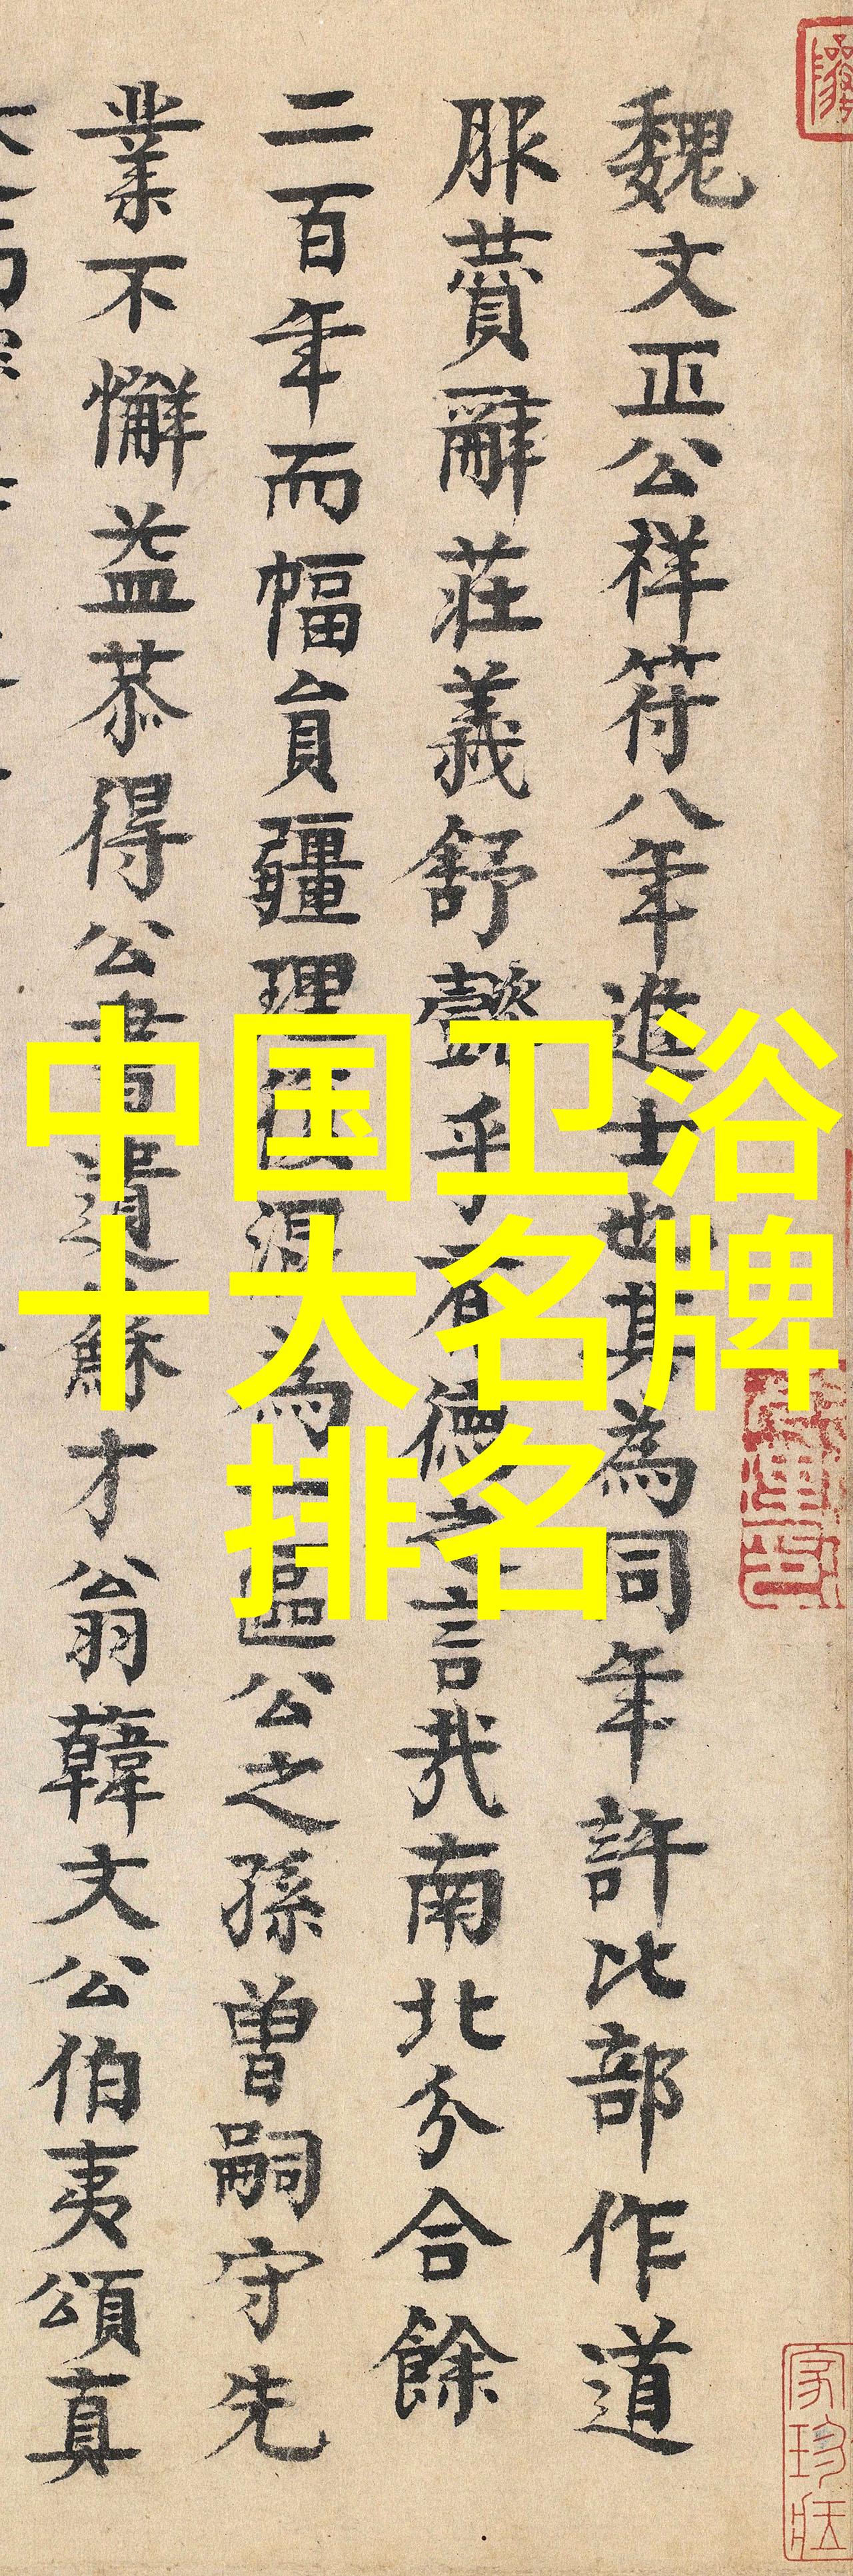 魏文正公祥符八年進士也其為同年許比部作道
服贊辭莊義舒懿乎有德之言哉南北分合餘
二百年而幅員疆理復混為一區公之孫曾嗣守先
業不懈益恭得公書遺蘇才翁韓文公伯夷頌真
中国卫浴
十大名牌
排名